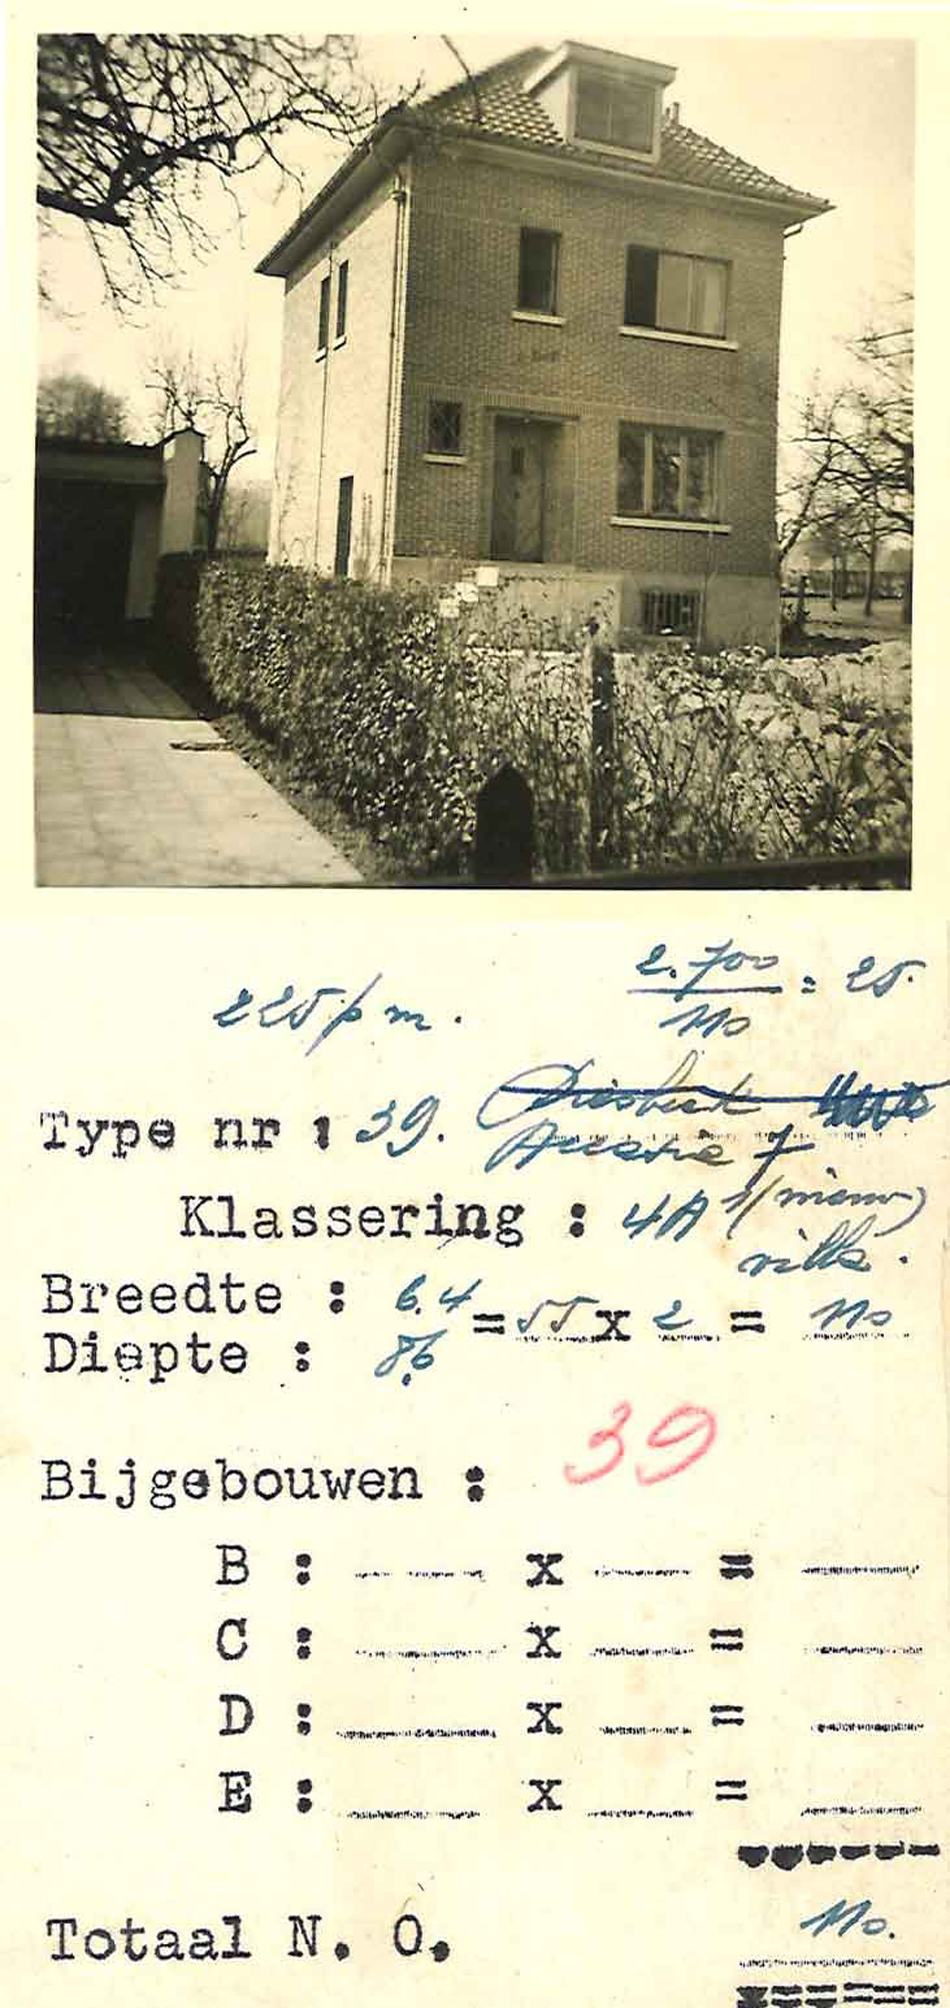 225 p m.
2.700 / 110 = 25.
Type nr : 39.
7
Klassering : 4A 1 (nieuw)
villa.
Breedte : 6.4
= 55 x 2 = 110
Diepte : 8,6
39
Bijgebouwen :
B : x =
C : x =
D : x =
E : x =
Totaal N. O. 110.